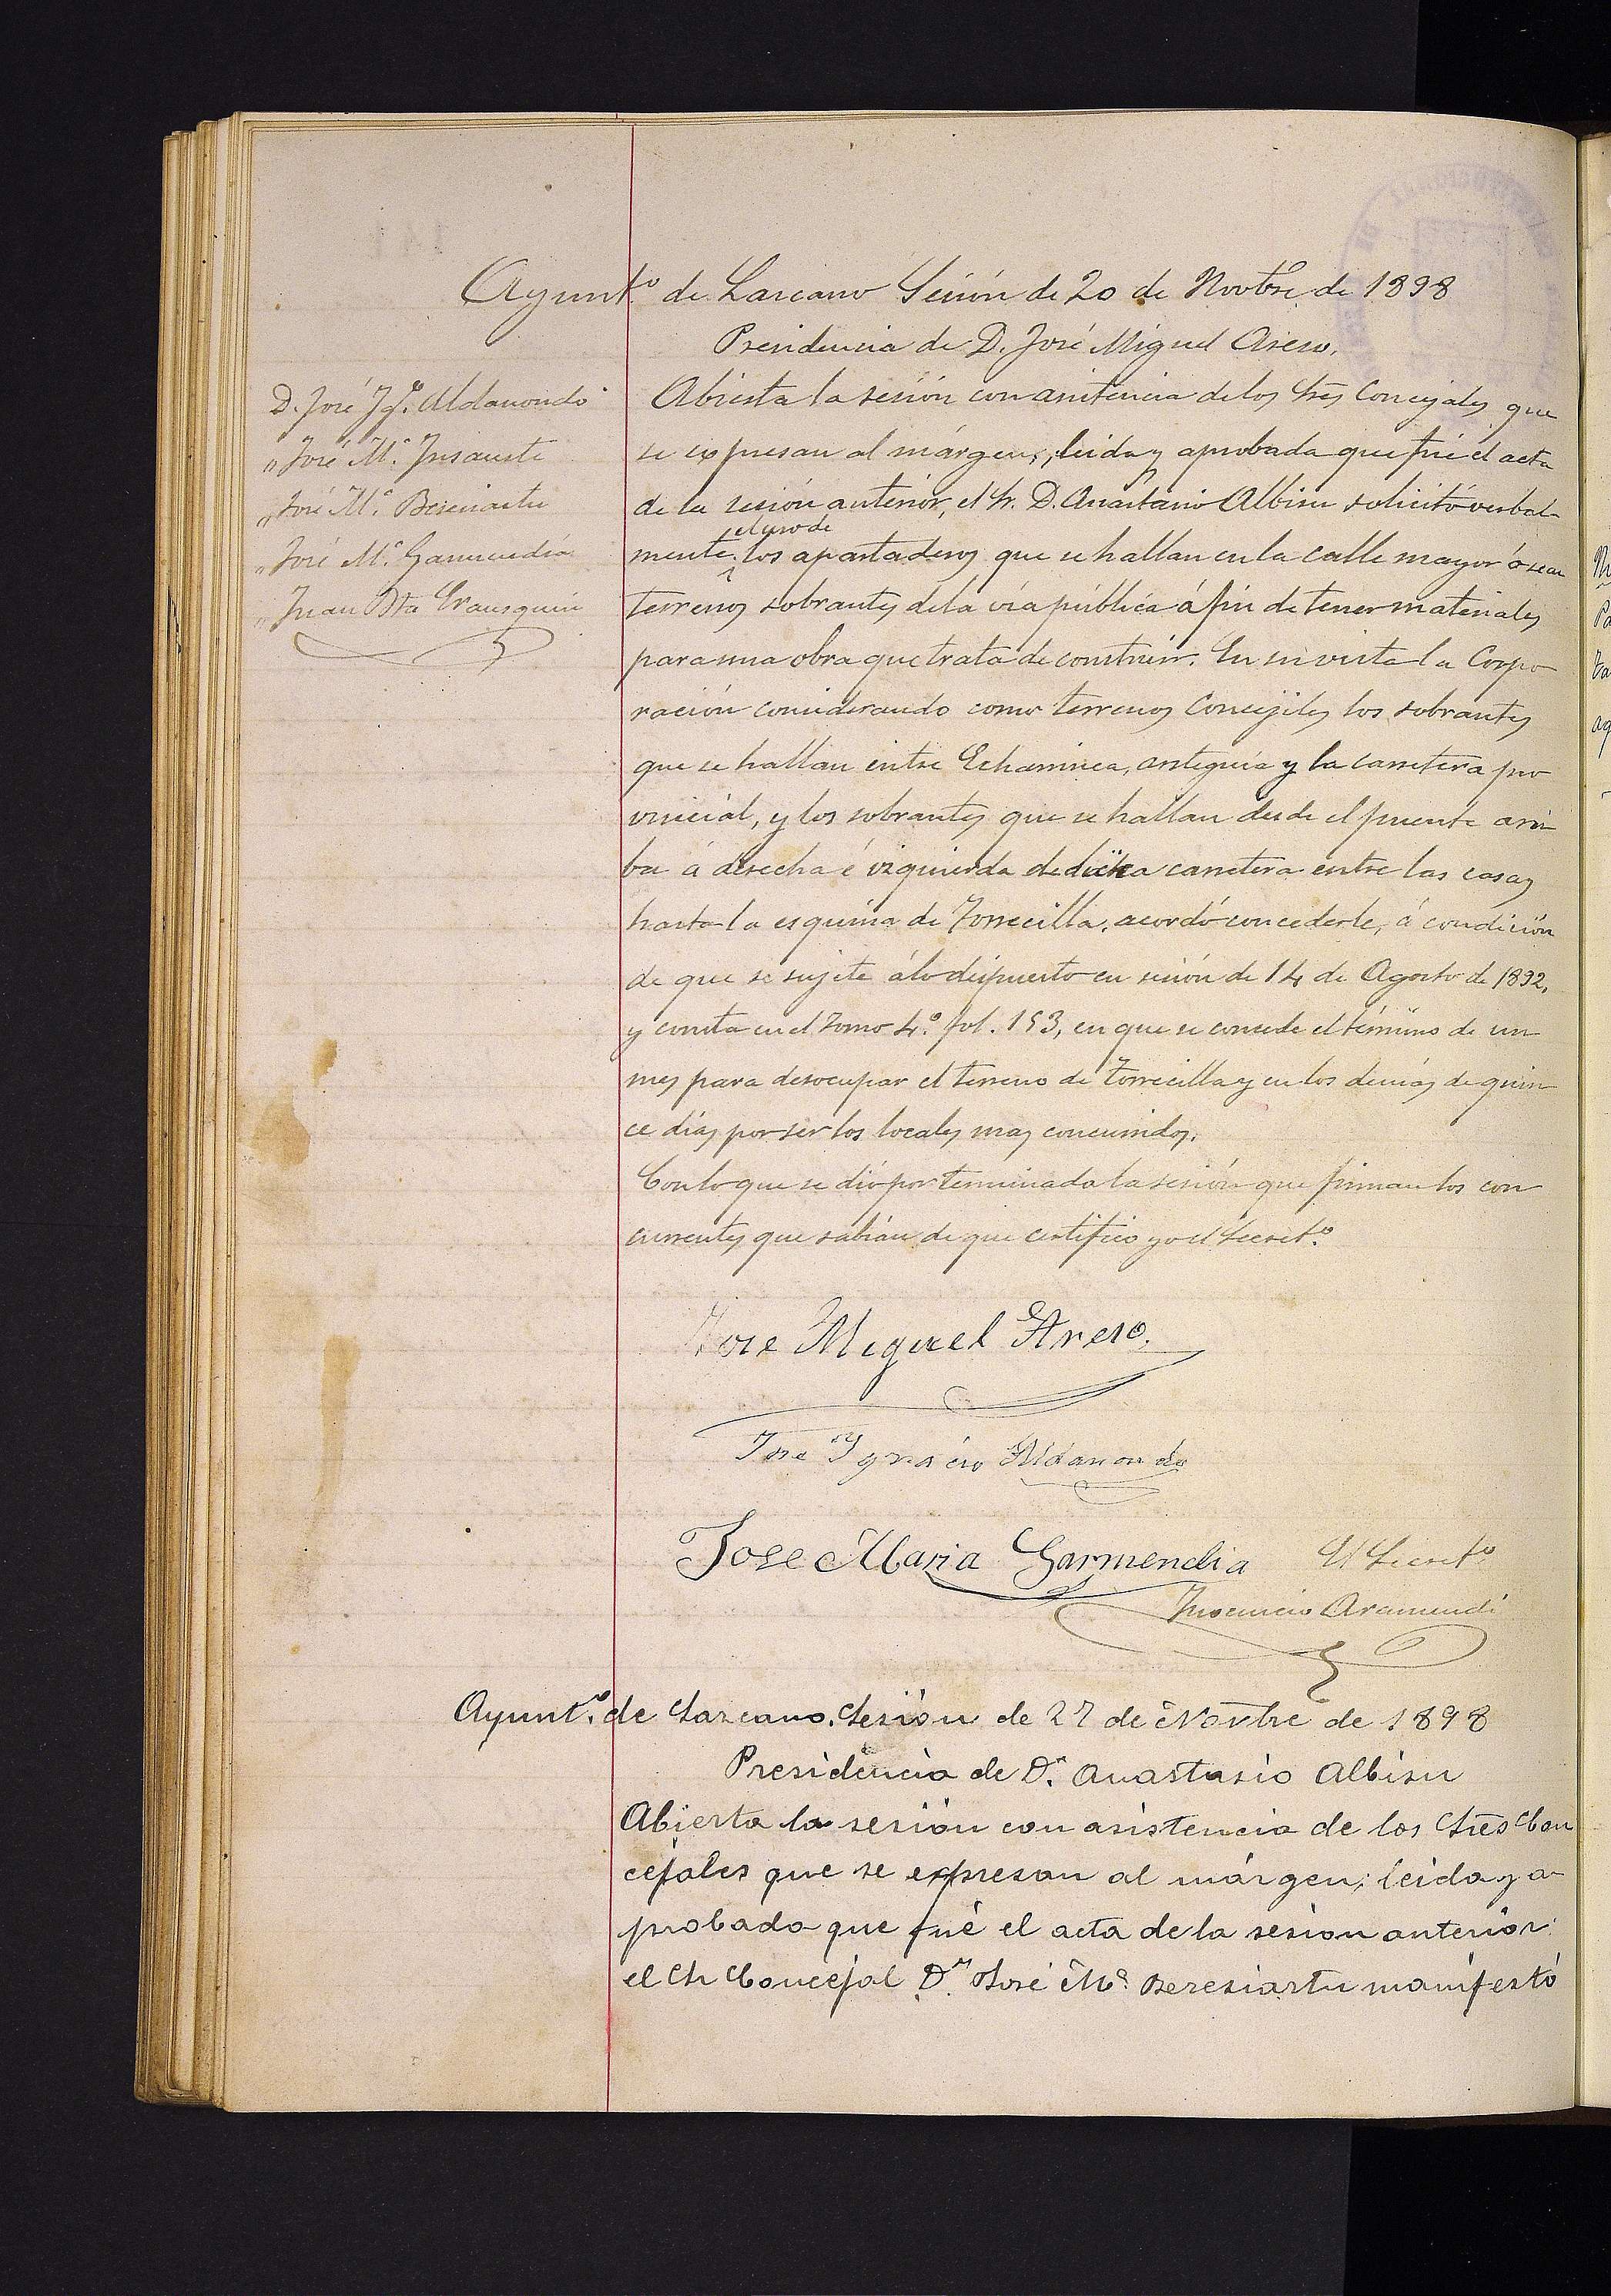 Ayunt.º de Lazcano Sesión de 20 de Novbre. de 1898
Presidencia de D. José Miguel Areso.
D. José Ygº. Aldanondo
" José M.ª Insausti
" José M.ª Beresiartu
" José M.ª Garmendia
" Juan Bta Erausquin
Abierta la sesión con asistencia de los Sres Concejales que
se expresan al márgen, leida y aprobada que fué el acta
de la sesión anterior, el Sr. D. Anastasio Albisu solicitó verbal-
el uso de
mente los apartaderos que se hallan en la calle mayor ó sean
terrenos sobrantes de la vía pública á fin de tener materiales
para una obra que trata de construir. En su vista la Corpo-
ración considerando como terrenos Concejiles los sobrantes
que se hallan entre antigua y la carretera pro-
vincial, y los sobrantes que se hallan desde el puente arri-
ba á derecha é izquierda de dicha carretera entre las casas
hasta la esquina de Torrecilla, acordó concederle, á condición
de que se sujete á lo dispuesto en sesión de 14 de Agosto de 1892,
y consta en el Tomo 4.º fol. 153, en que se concede el término de un
mes para desocupar el terreno de Torrecilla y en los demás de quin-
ce dias por ser los locales mas concurridos.
Con lo que se dió por terminada la sesión que firman los con-
currentes que sabian de que certifico yo el Secret.º
Jose Miguel Areso.
Jose Ygnacio Aldanondo
Jose Maria Garmendia
El Secret.º
Inocencio Aramendi
Ayunt.º de Lazcano. Sesión de 27 de Novbre de 1898
Presidencia de D.n Anastasio Albisu
Abierta la sesión con asistencia de los Sres Con
cejales que se expresan al márgen; leida y a-
probada que fué el acta de la sesion anterior:
el Sr Concejal D.n José M.ª Beresiartu manifestó